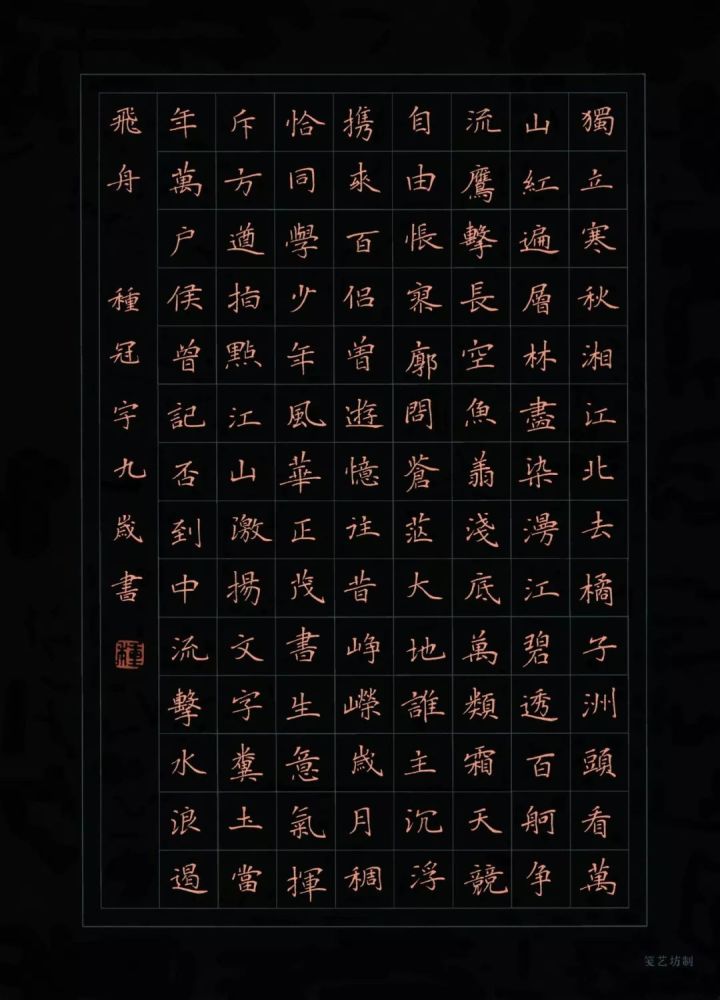 獨立寒秋湘江北去橘子洲頭看萬
山紅遍層林盡染漫江碧透百舸争
流鷹擊長空魚翔淺底萬類霜天競
自由悵寥廓問蒼茫大地誰主沉浮
携來百侣曾遊憶往昔崢嶸歲月稠
恰同學少年風華正茂書生意氣揮
斥方遒指點江山激揚文字糞土當
年萬户侯曾記否到中流擊水浪遏
飛舟 種冠宇九歲書
種
笺艺坊制